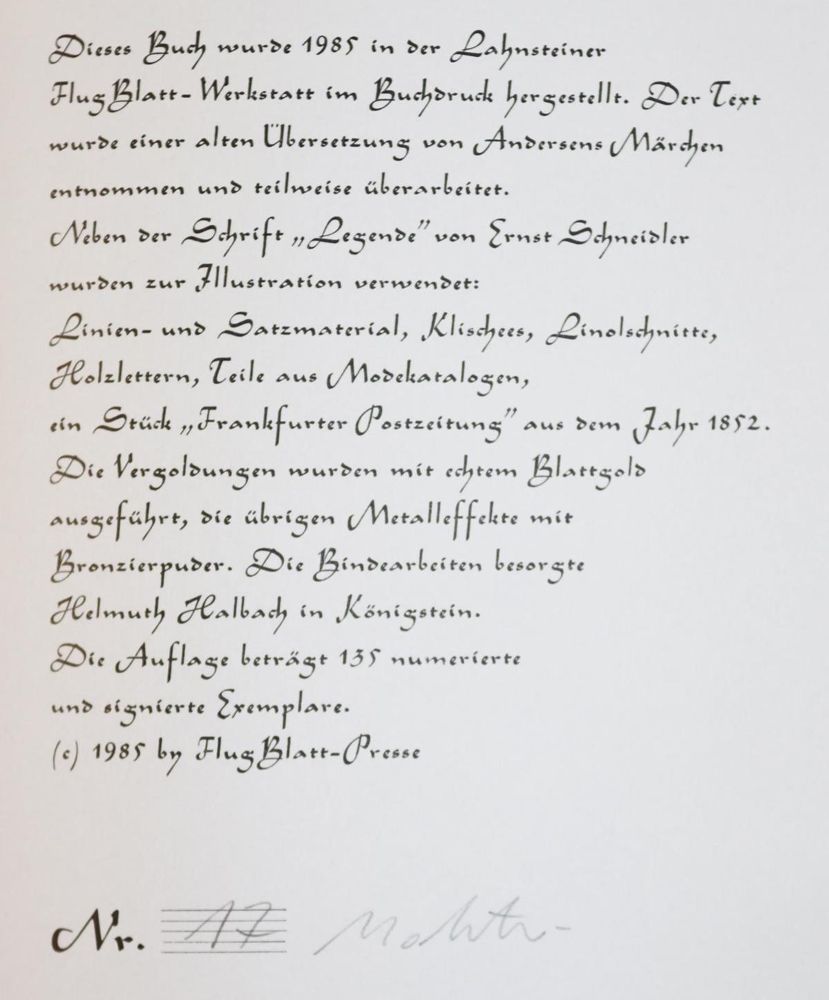 Dieses Buch wurde 1985 in der Lahnsteiner
FlugBlatt-Werkstatt im Buchdruck hergestellt. Der Text
wurde einer alten Übersetzung von Andersens Märchen
entnommen und teilweise überarbeitet.
Neben der Schrift „Legende” von Ernst Schneidler
wurden zur Illustration verwendet:
Linien- und Satzmaterial, Klischees, Linolschnitte,
Holzlettern, Teile aus Modekatalogen,
ein Stück „Frankfurter Postzeitung” aus dem Jahr 1852.
Die Vergoldungen wurden mit echtem Blattgold
ausgeführt, die übrigen Metalleffekte mit
Bronzierpuder. Die Bindearbeiten besorgte
Helmuth Halbach in Königstein.
Die Auflage beträgt 135 numerierte
und signierte Exemplare.
(c) 1985 by FlugBlatt-Presse
Nr. 17